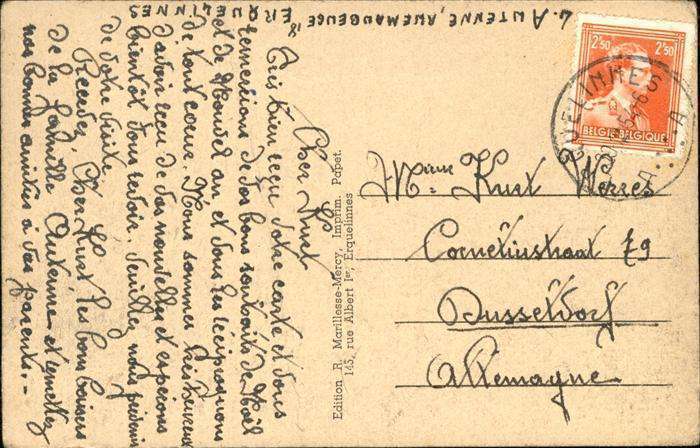 L. Autenne, rue Mangeuge 18
ERQUELINNES
Cher Kurt
Très bien reçu votre carte et vous
remercions de vos bons souhaits de Noël
et de Nouvel an et vous les réciproquons
de tout coeur. Nous sommes très heureux
d'avoir reçu de vos nouvelles et espérons
bientôt vous revoir. Veuillez nous prévenir
de votre visite.
Recevez, Cher Kurt les bons baisers
de la famille Autenne et remettez
nos bonnes amitiés à vos parents. -
Edition R. Marillesse-Mercy, Imprim. Papet.
145, rue Albert Ier, Erquelinnes
2F50 2F50
BELGIE-BELGIQUE
ERQUELINNES
A A
Kurt Herzes
Corneliusstraat 79
Dusseldorf
Allemagne